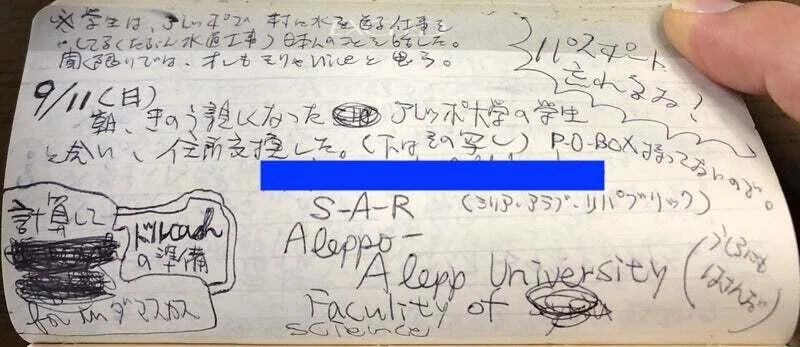 ※学生は、アレッポで村に水を送る仕事を
してる(たぶん水道工事)日本人のことを話した。
聞く限りでは、オレもそりゃniceと思う。
パスポート
忘れるな!
9/11(日)
朝、きのう親しくなった アレッポ大学の学生
と会い、住所交換した。(下はその写し) P-O-BOX 持ってないので。
S-A-R (シリア・アラブ・リパブリック)
Aleppo-
Alepp University
(うしろにも
はさんだ)
Faculity of
science
計算して
ドルcash
の準備
for inダマスカス